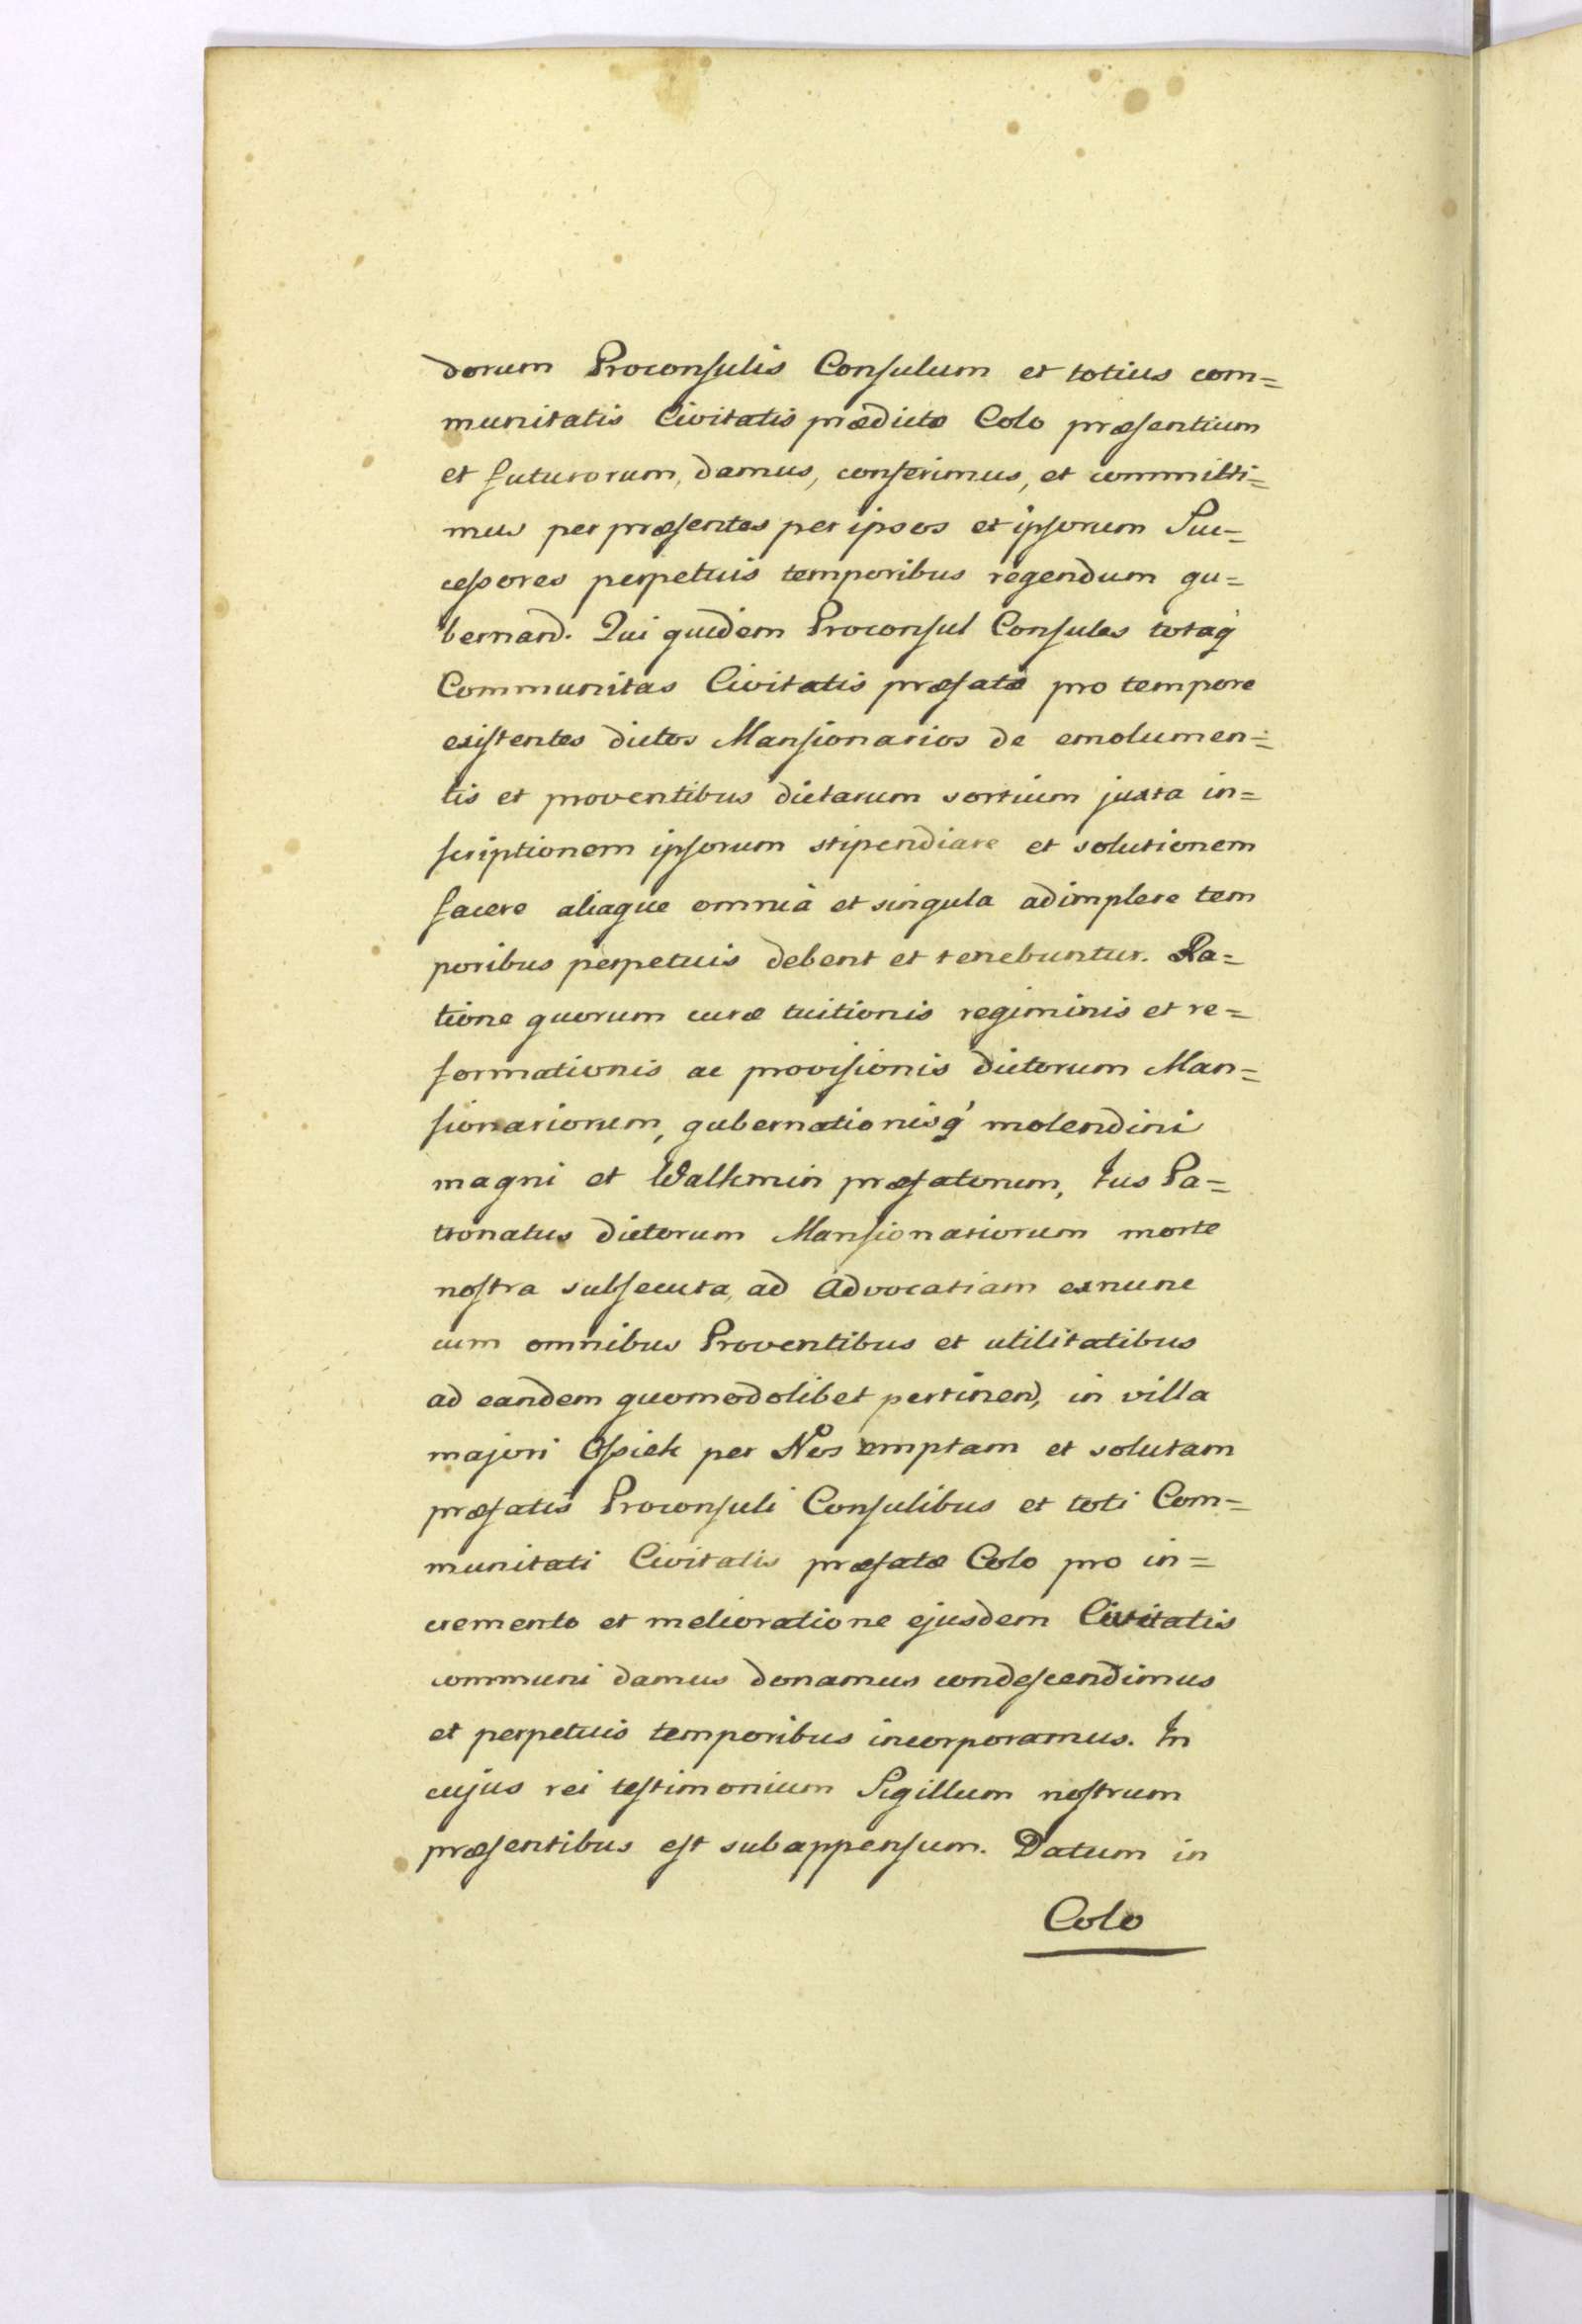 dorum Proconſulis Conſulum et totius com=
munitatis Civitatis prædictæ Colo præſentium
et futurorum, damus, conferimus, et committi=
mus per præſentes per ipsos et ipſorum Suc=
ceſsores perpetuis temporibus regendum gu=
bernand. Qui quidem Proconſul Conſules totaq́
Communitas Civitatis præfatæ pro tempore
exiſtentes dictos Manſionarios de emolumen=
tis et proventibus dictarum sortium juxta in=
ſcriptionem ipſorum stipendiare et solutionem
facere aliaque omnia et singula adimplere tem
poribus perpetuis debent et tenebuntur. Ra=
tione quorum curæ tuitionis regiminis et re=
formationis ac proviſionis dictorum Man=
ſionariorum, gubernationisq́ molendini
magni et Walkmin præfatorum, Jus Pa=
tronatus dictorum Manſionariorum morte
noſtra subſecuta, ad Advocatiam exnunc
cum omnibus Proventibus et utilitatibus
ad eandem quomodolibet pertinen, in villa
majori Oſsiek per Nos emptam et solutam
præfatis Proconſuli Conſulibus et toti Com=
munitati Civitatis præfatæ Colo pro in=
cremento et melioratione ejusdem Civitatis
communi damus donamus condeſcendimus
et perpetuis temporibus incorporamus. In
cujus rei teſtimonium Sigillum noſtrum
præſentibus eſt subappenſum. Datum in
Colo